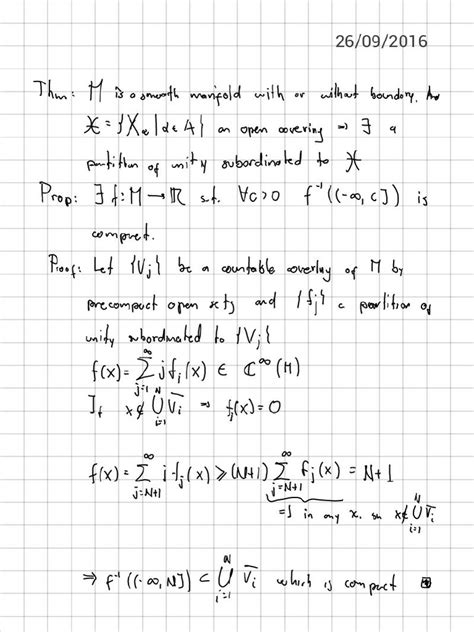 26/09/2016
Thm: M is a smooth manifold with or without boundary,
𝒳 = {X_α | α ∈ A} an open covering ⇒ ∃ a
partition of unity subordinated to 𝒳
Prop: ∃ f: M → ℝ s.t. ∀c>0 f⁻¹((-∞, c]) is
compact.
Proof: Let {V_j} be a countable covering of M by
precompact open sets and {f_j} a partition of
unity subordinated to {V_j}
f(x) = ∑_{j=1}^∞ j f_j(x) ∈ C^∞(M)
If x ∉ ⋃_{i=1}^N V̄_i ⇒ f_j(x) = 0
f(x) = ∑_{j=N+1}^∞ j f_j(x) ⩾ (N+1) ∑_{j=N+1}^∞ f_j(x) = N+1
=1 in any x, x ∉ ⋃_{i=1}^N V̄_i
⇒ f⁻¹((-∞, N]) ⊂ ⋃_{i=1}^N V̄_i which is compact